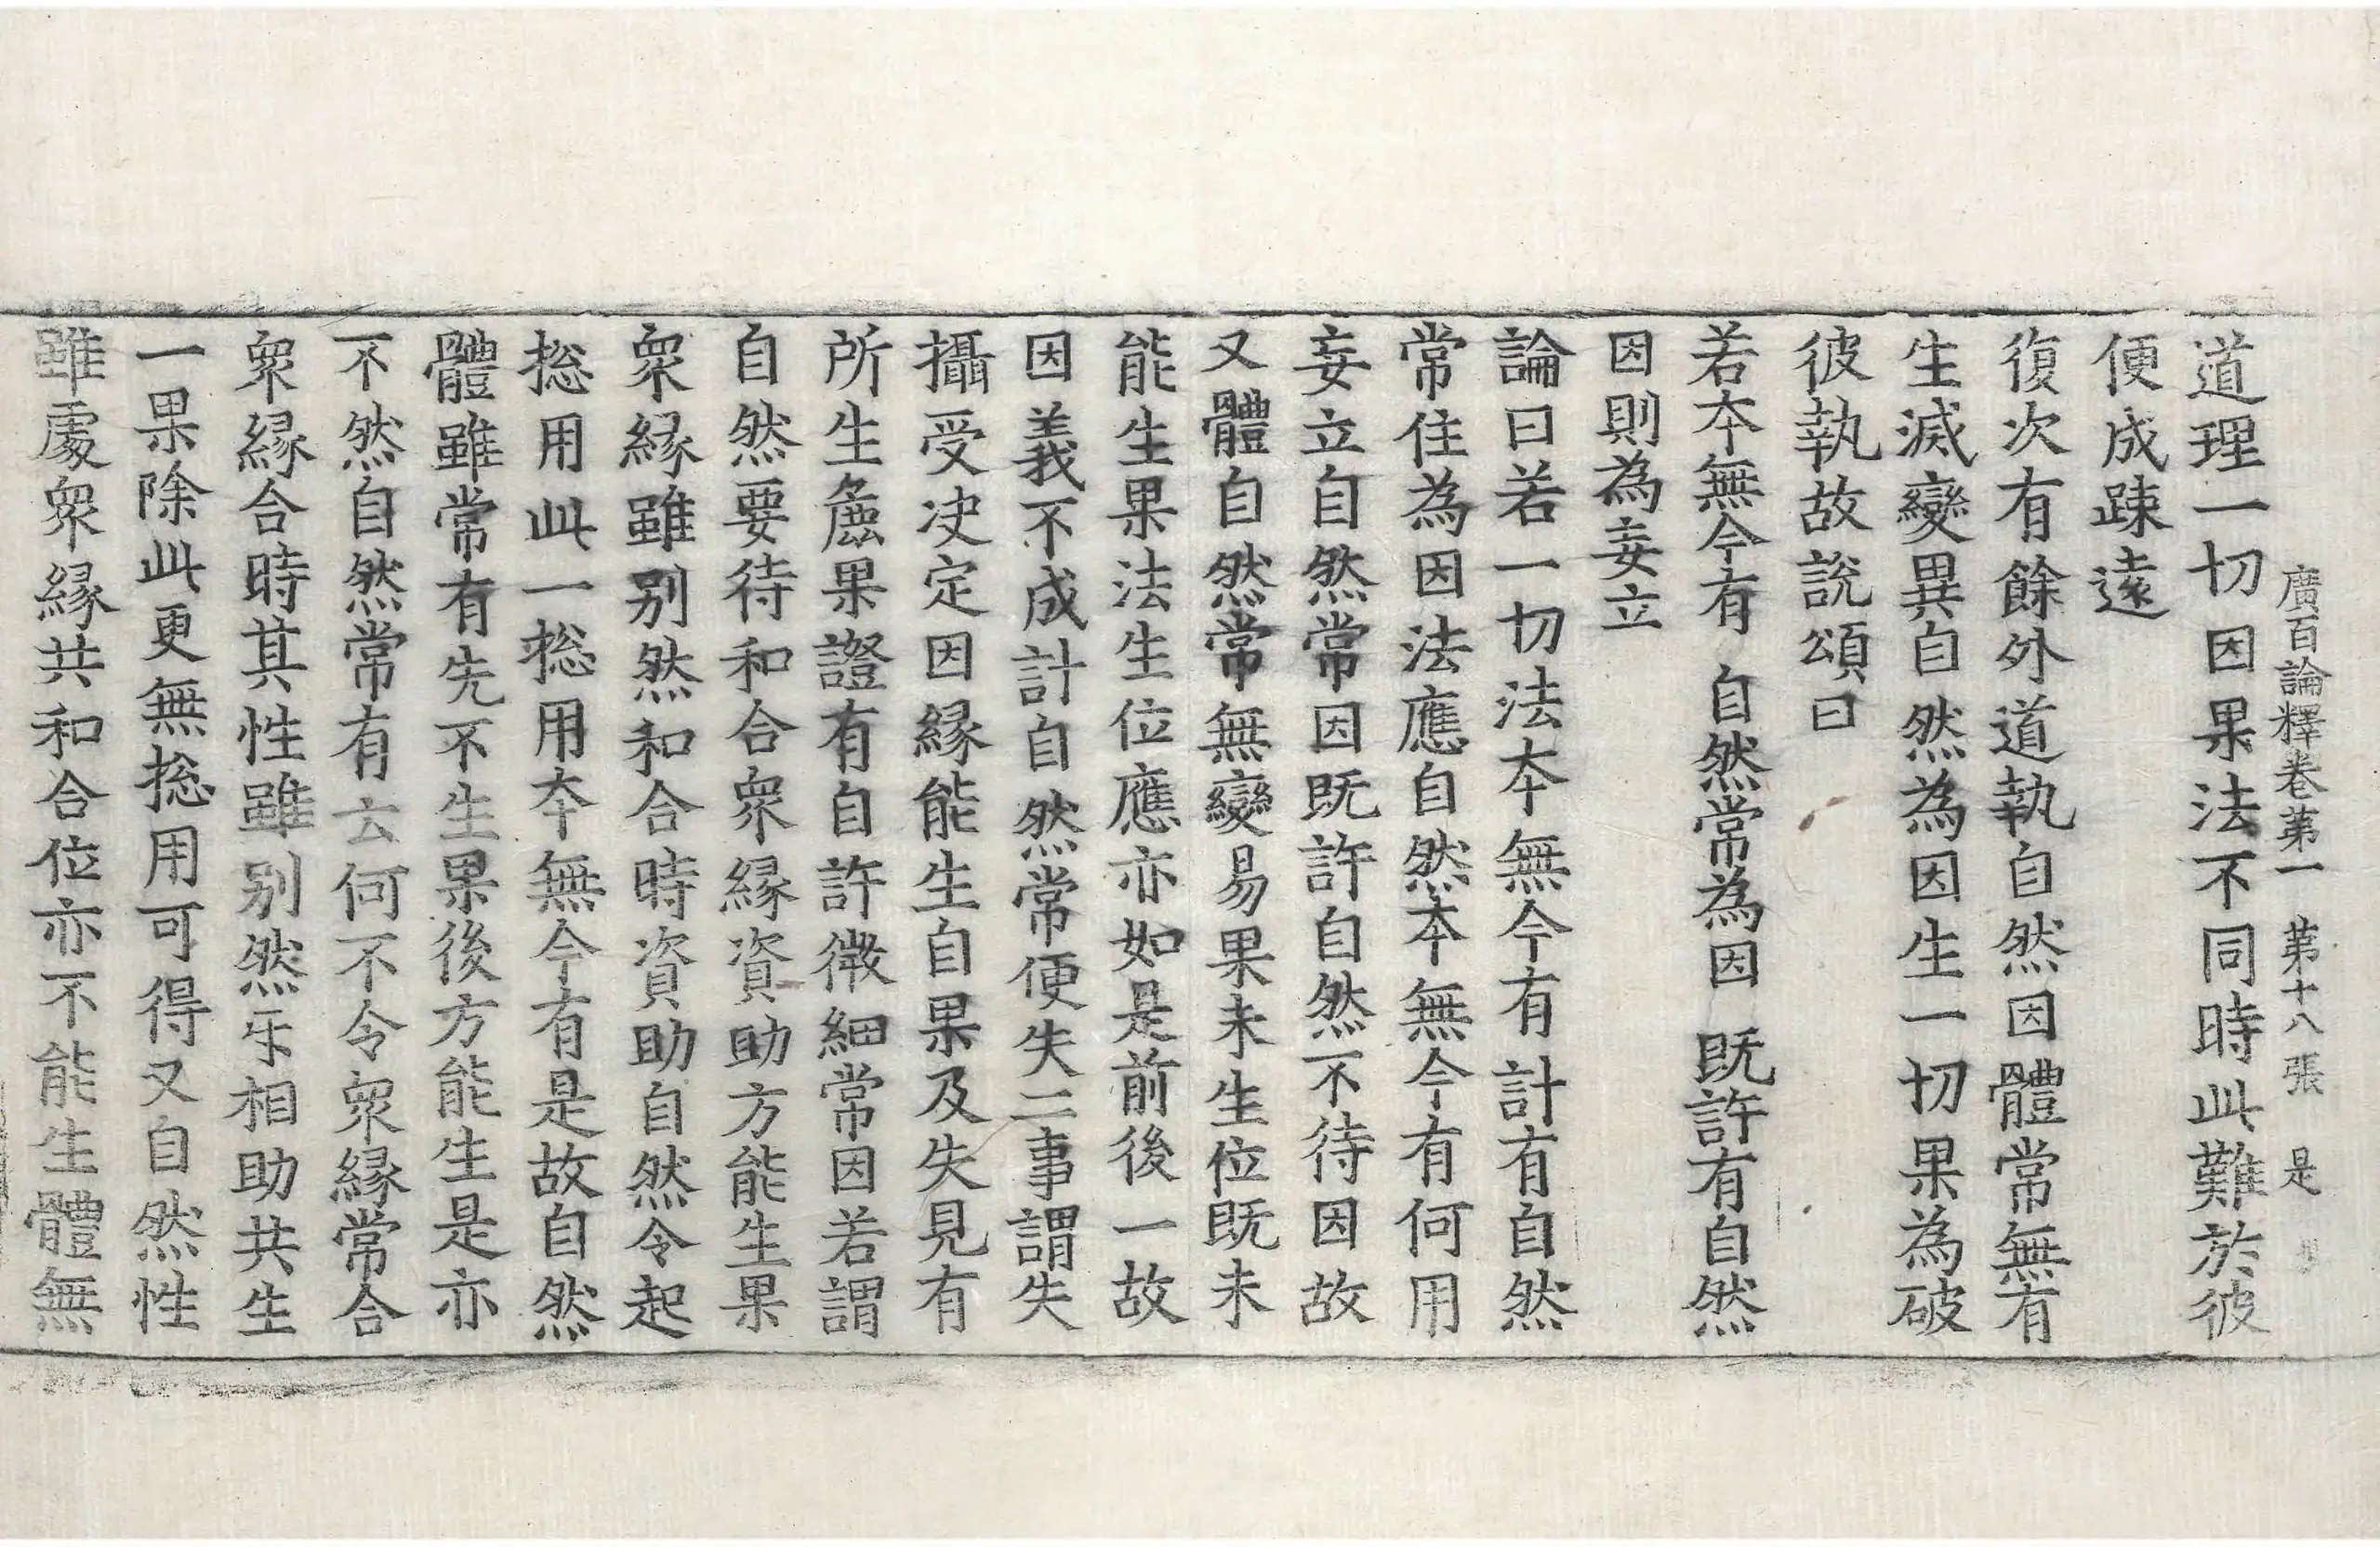 廣百論釋卷第一　第十八張　是
道理一切因果法不同時此難於彼
便成踈遠
復次有餘外道執自然因體常無有
生滅變異自然為因生一切果為破
彼執故說頌曰
若夲無今有　自然常為因　既許有自然
因則為妄立
論曰若一切法夲無今有計有自然
常住為因法應自然夲無今有何用
妄立自然常因既許自然不待因故
又體自然常無變易果未生位既未
能生果法生位應亦如是前後一故
因義不成計自然常便失二事謂失
攝受决定因緣能生自果及失見有
所生麁果證有自許微細常因若謂
自然要待和合衆緣資助方能生果
衆緣雖別然和合時資助自然令起
捴用此一捴用夲無今有是故自然
體雖常有先不生果後方能生是亦
不然自然常有云何不令衆緣常合
衆緣合時其性雖別然㸦相助共生
一果除此更無捴用可得又自然性
雖處衆緣共和合位亦不能生體無